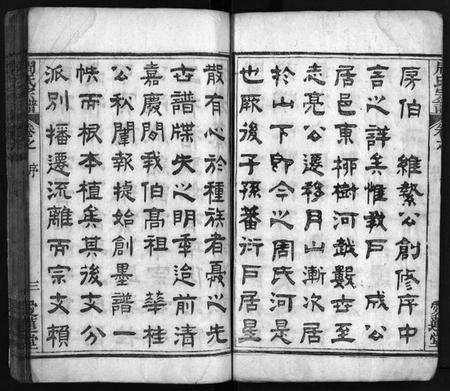 房伯維藜公創修序中
言之詳矣惟我戶成公
居邑東柳樹河越數世至
志亮公遷移月山漸次居
於山下即今之周氏河是
也厥後子孫蕃衍戶居星
散有心於種族者憂之先
世譜牒失之明季迨前清
嘉慶間我伯高祖華桂
公秋闈報捷始創墨譜一
帙而根本植矣其後支分
派別播遷流離而宗支賴
卷之
序
三